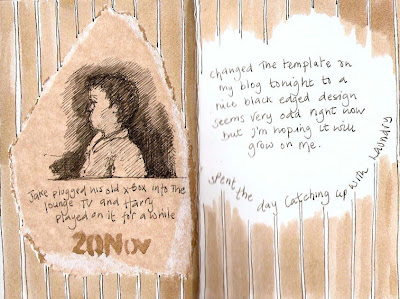 Jake plugged his old x-Box into the
lounge TV and Harry
played on it for a while
20Nov
changed the template on
my blog tonight to a
nice black edged design
seems very odd right now
but I'm hoping it will
grow on me.
spent the day catching up with laundry